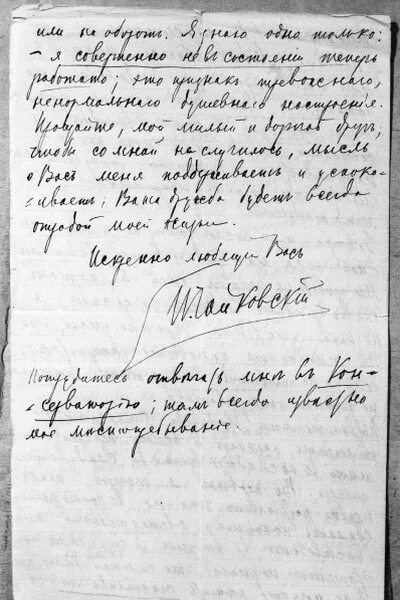 или наоборотъ. Я знаю одно только:
я совершенно не въ состояніи теперь
работать; это признакъ тревожнаго,
ненормальнаго душевнаго настроенія.
Прощайте, мой милый и дорогой другъ;
чтобы со мной ни случилось, мысль
о Васъ меня поддерживаетъ и успока-
-иваетъ; Ваша дружба будетъ всегда
отрадой моей жизни.
Искренно любящій Васъ
П. Чайковскій
Потрудитесь отвѣчать мнѣ въ Кон-
-серваторію; тамъ всегда извѣстно
мое мѣстопребываніе.